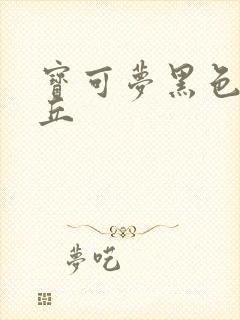 寶可夢黑色
丘
夢吃